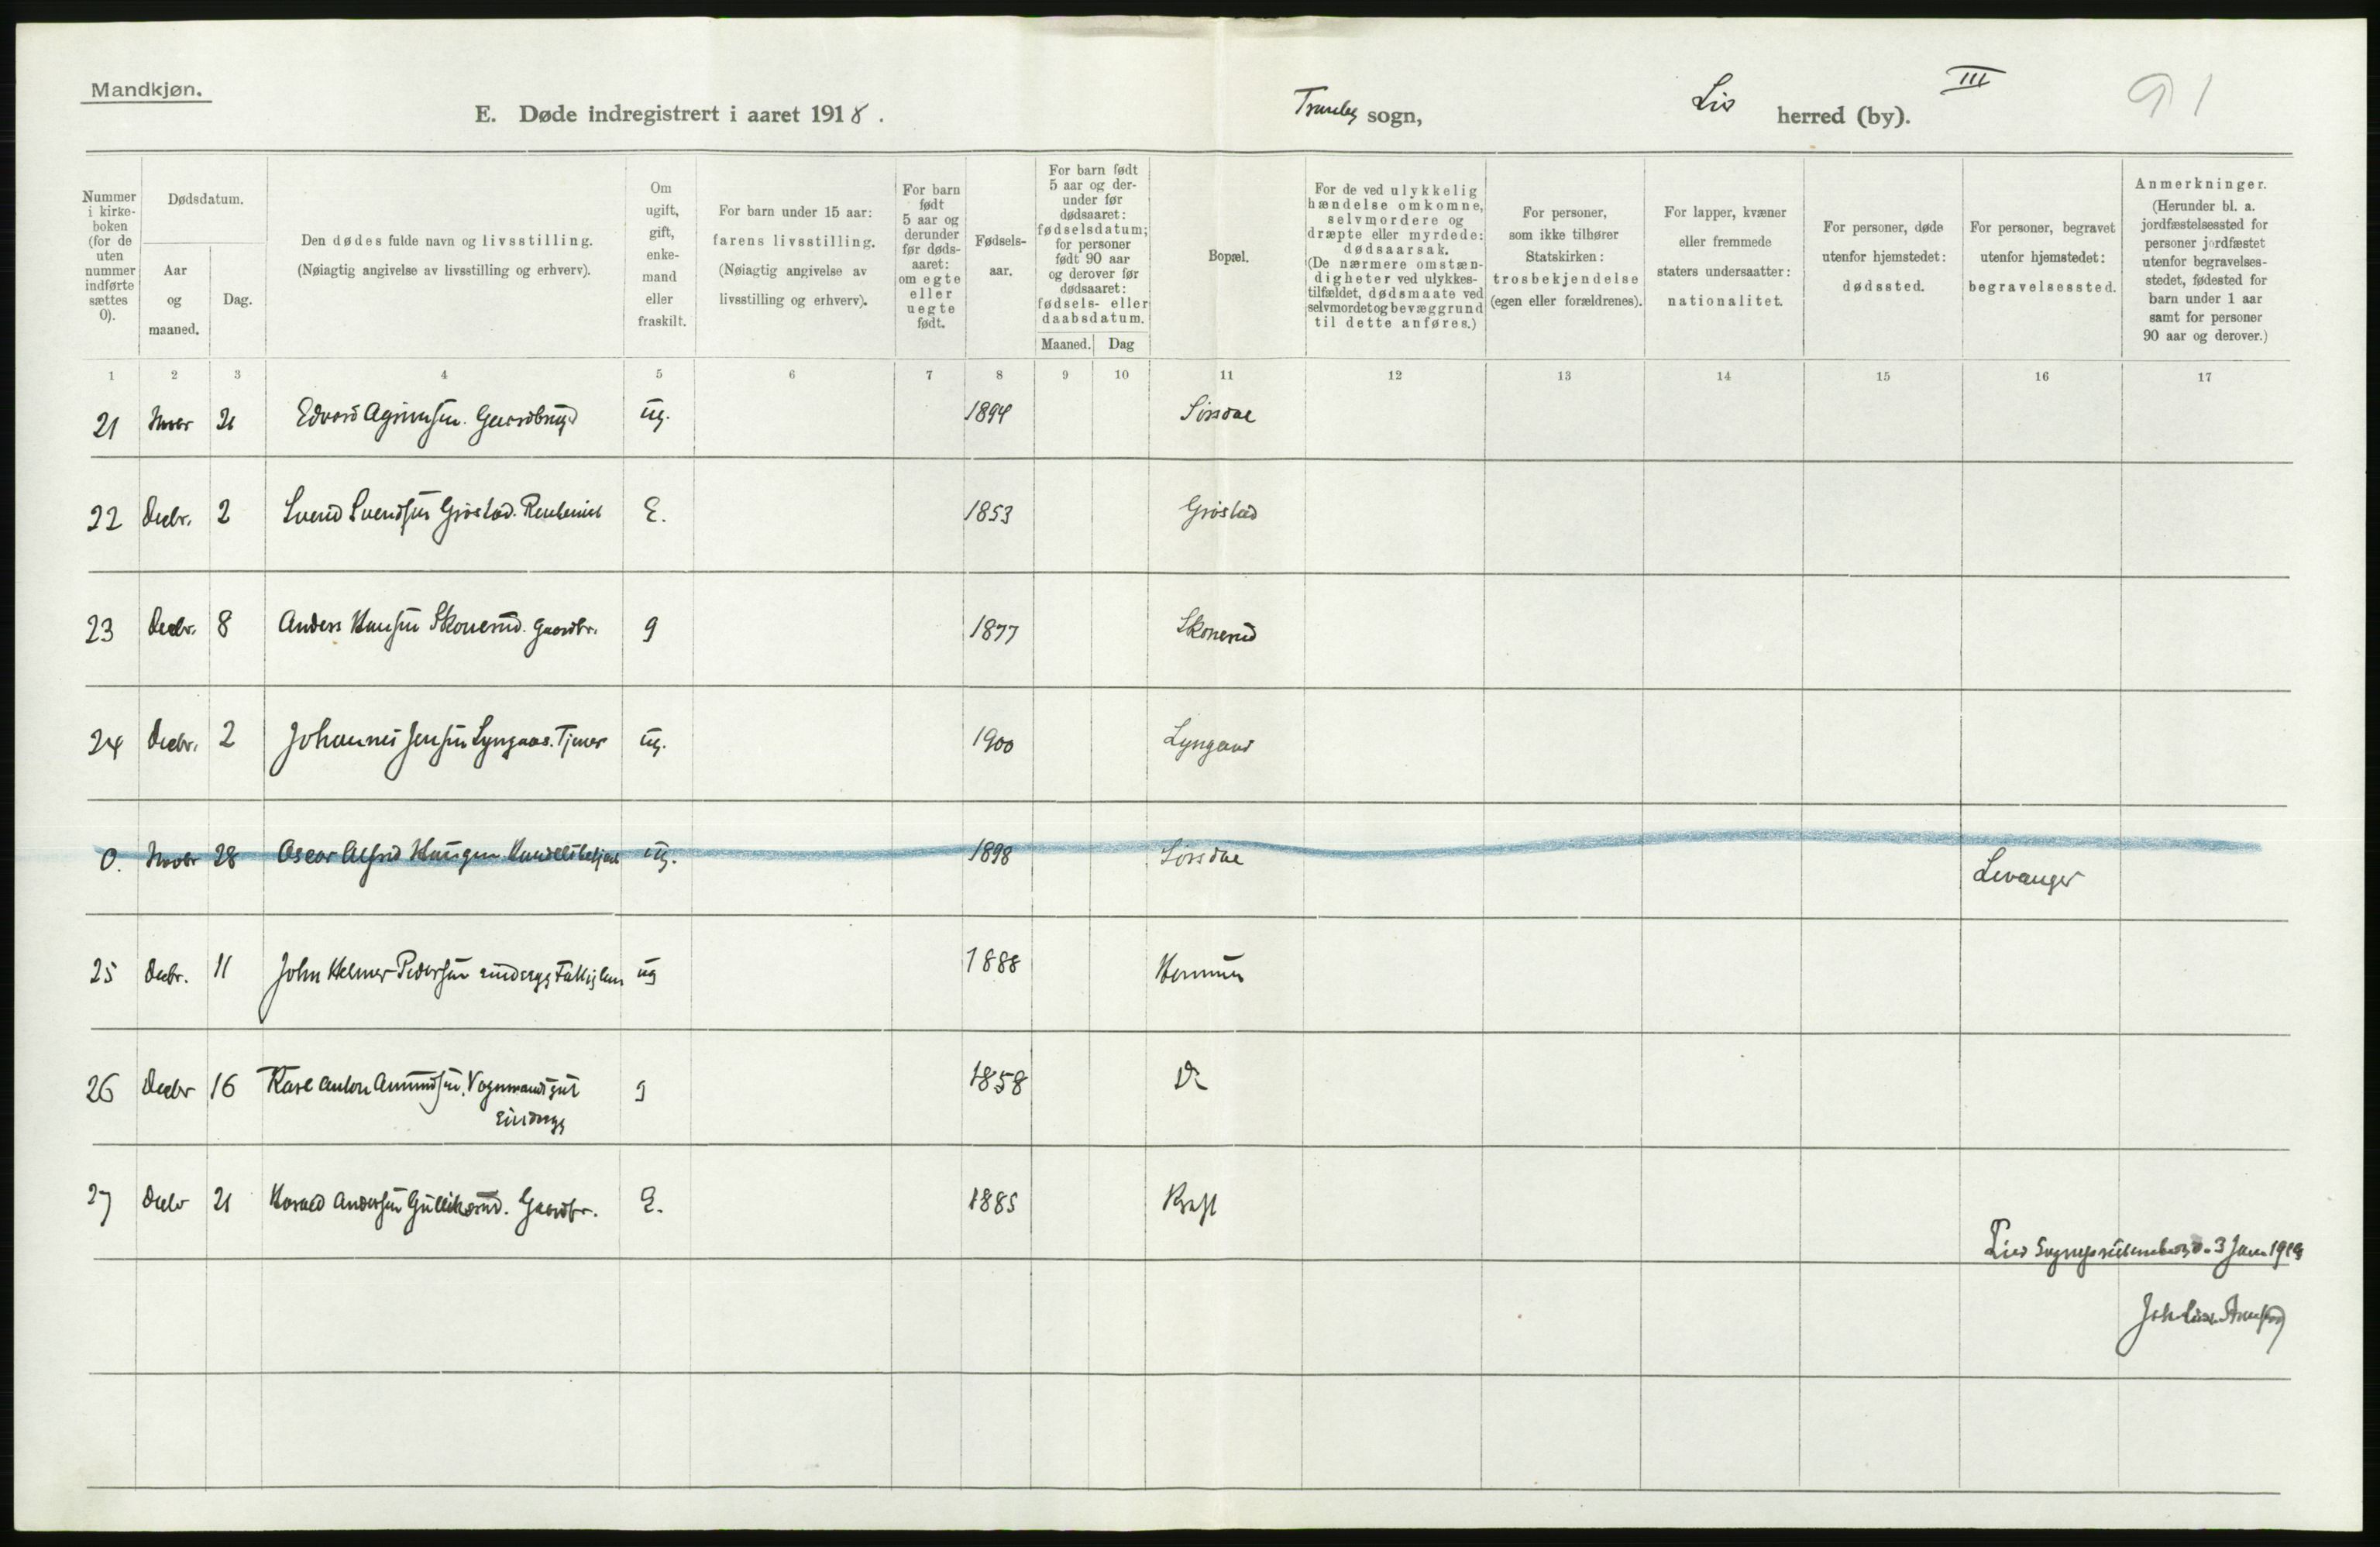 Mandkjøn.
E. Døde indregistrert i aaret 1918.
Tranby sogn,
Lier herred (by).
III
91
Nummer i kirke-boken (for de uten nummer indførte sættes 0).
Dødsdatum.
Aar og maaned.
Dag.
Den dødes fulde navn og livsstilling.
(Nøiagtig angivelse av livsstilling og erhverv).
Om ugift, gift, enke-mand eller fraskilt.
For barn under 15 aar: farens livsstilling. (Nøiagtig angivelse av livsstilling og erhverv).
For barn født 5 aar og derunder før døds-aaret: om egte eller uegte født.
Fødsels-aar.
For barn født 5 aar og der-under før dødsaaret: fødselsdatum; for personer født 90 aar og derover før dødsaaret: fødsels- eller daabsdatum.
Maaned.
Dag
Bopæl.
For de ved ulykkelig hændelse omkomne, selvmordere og dræpte eller myrdede: dødsaarsak. (De nærmere omstæn-digheter ved ulykkes-tilfældet, dødsmaate ved selvmordet og bevæggrund til dette anføres.)
For personer, som ikke tilhører Statskirken: trosbekjendelse (egen eller forældrenes).
For lapper, kvæner eller fremmede staters undersaatter: nationalitet.
For personer, døde utenfor hjemstedet: dødssted.
For personer, begravet utenfor hjemstedet: begravelsessted.
Anmerkninger. (Herunder bl. a. jordfæstelsessted for personer jordfæstet utenfor begravelses-stedet, fødested for barn under 1 aar samt for personer 90 aar og derover.)
1 2 3 4 5 6 7 8 9 10 11 12 13 14 15 16 17
21 Novbr 21 Edvard Agrimsen. ug. 1894
22 Decbr. 2 Svend Svendsen Grøstad. E. 1853 Grøstad
23 Decbr. 8 Anders Hansen Skonerud. Gaardbr. g 1877 Skonerud
24 Decbr. 2 Johannes Jensen Lyngaas. Tjener ug. 1900 Lyngaas
0. Novbr 28 Oscar Alfred Haugen. Handelsbetjent ug. 1898 Levanger
25 Decbr. 11 John Helmer Pedersen ug 1888
26 Decbr 16 Karl Anton Amundsen. g 1858 Do
27 Decbr 21 Harald Andersen Gulliksrud. Gaardbr. E. 1885
Lier 3 Jan. 1919